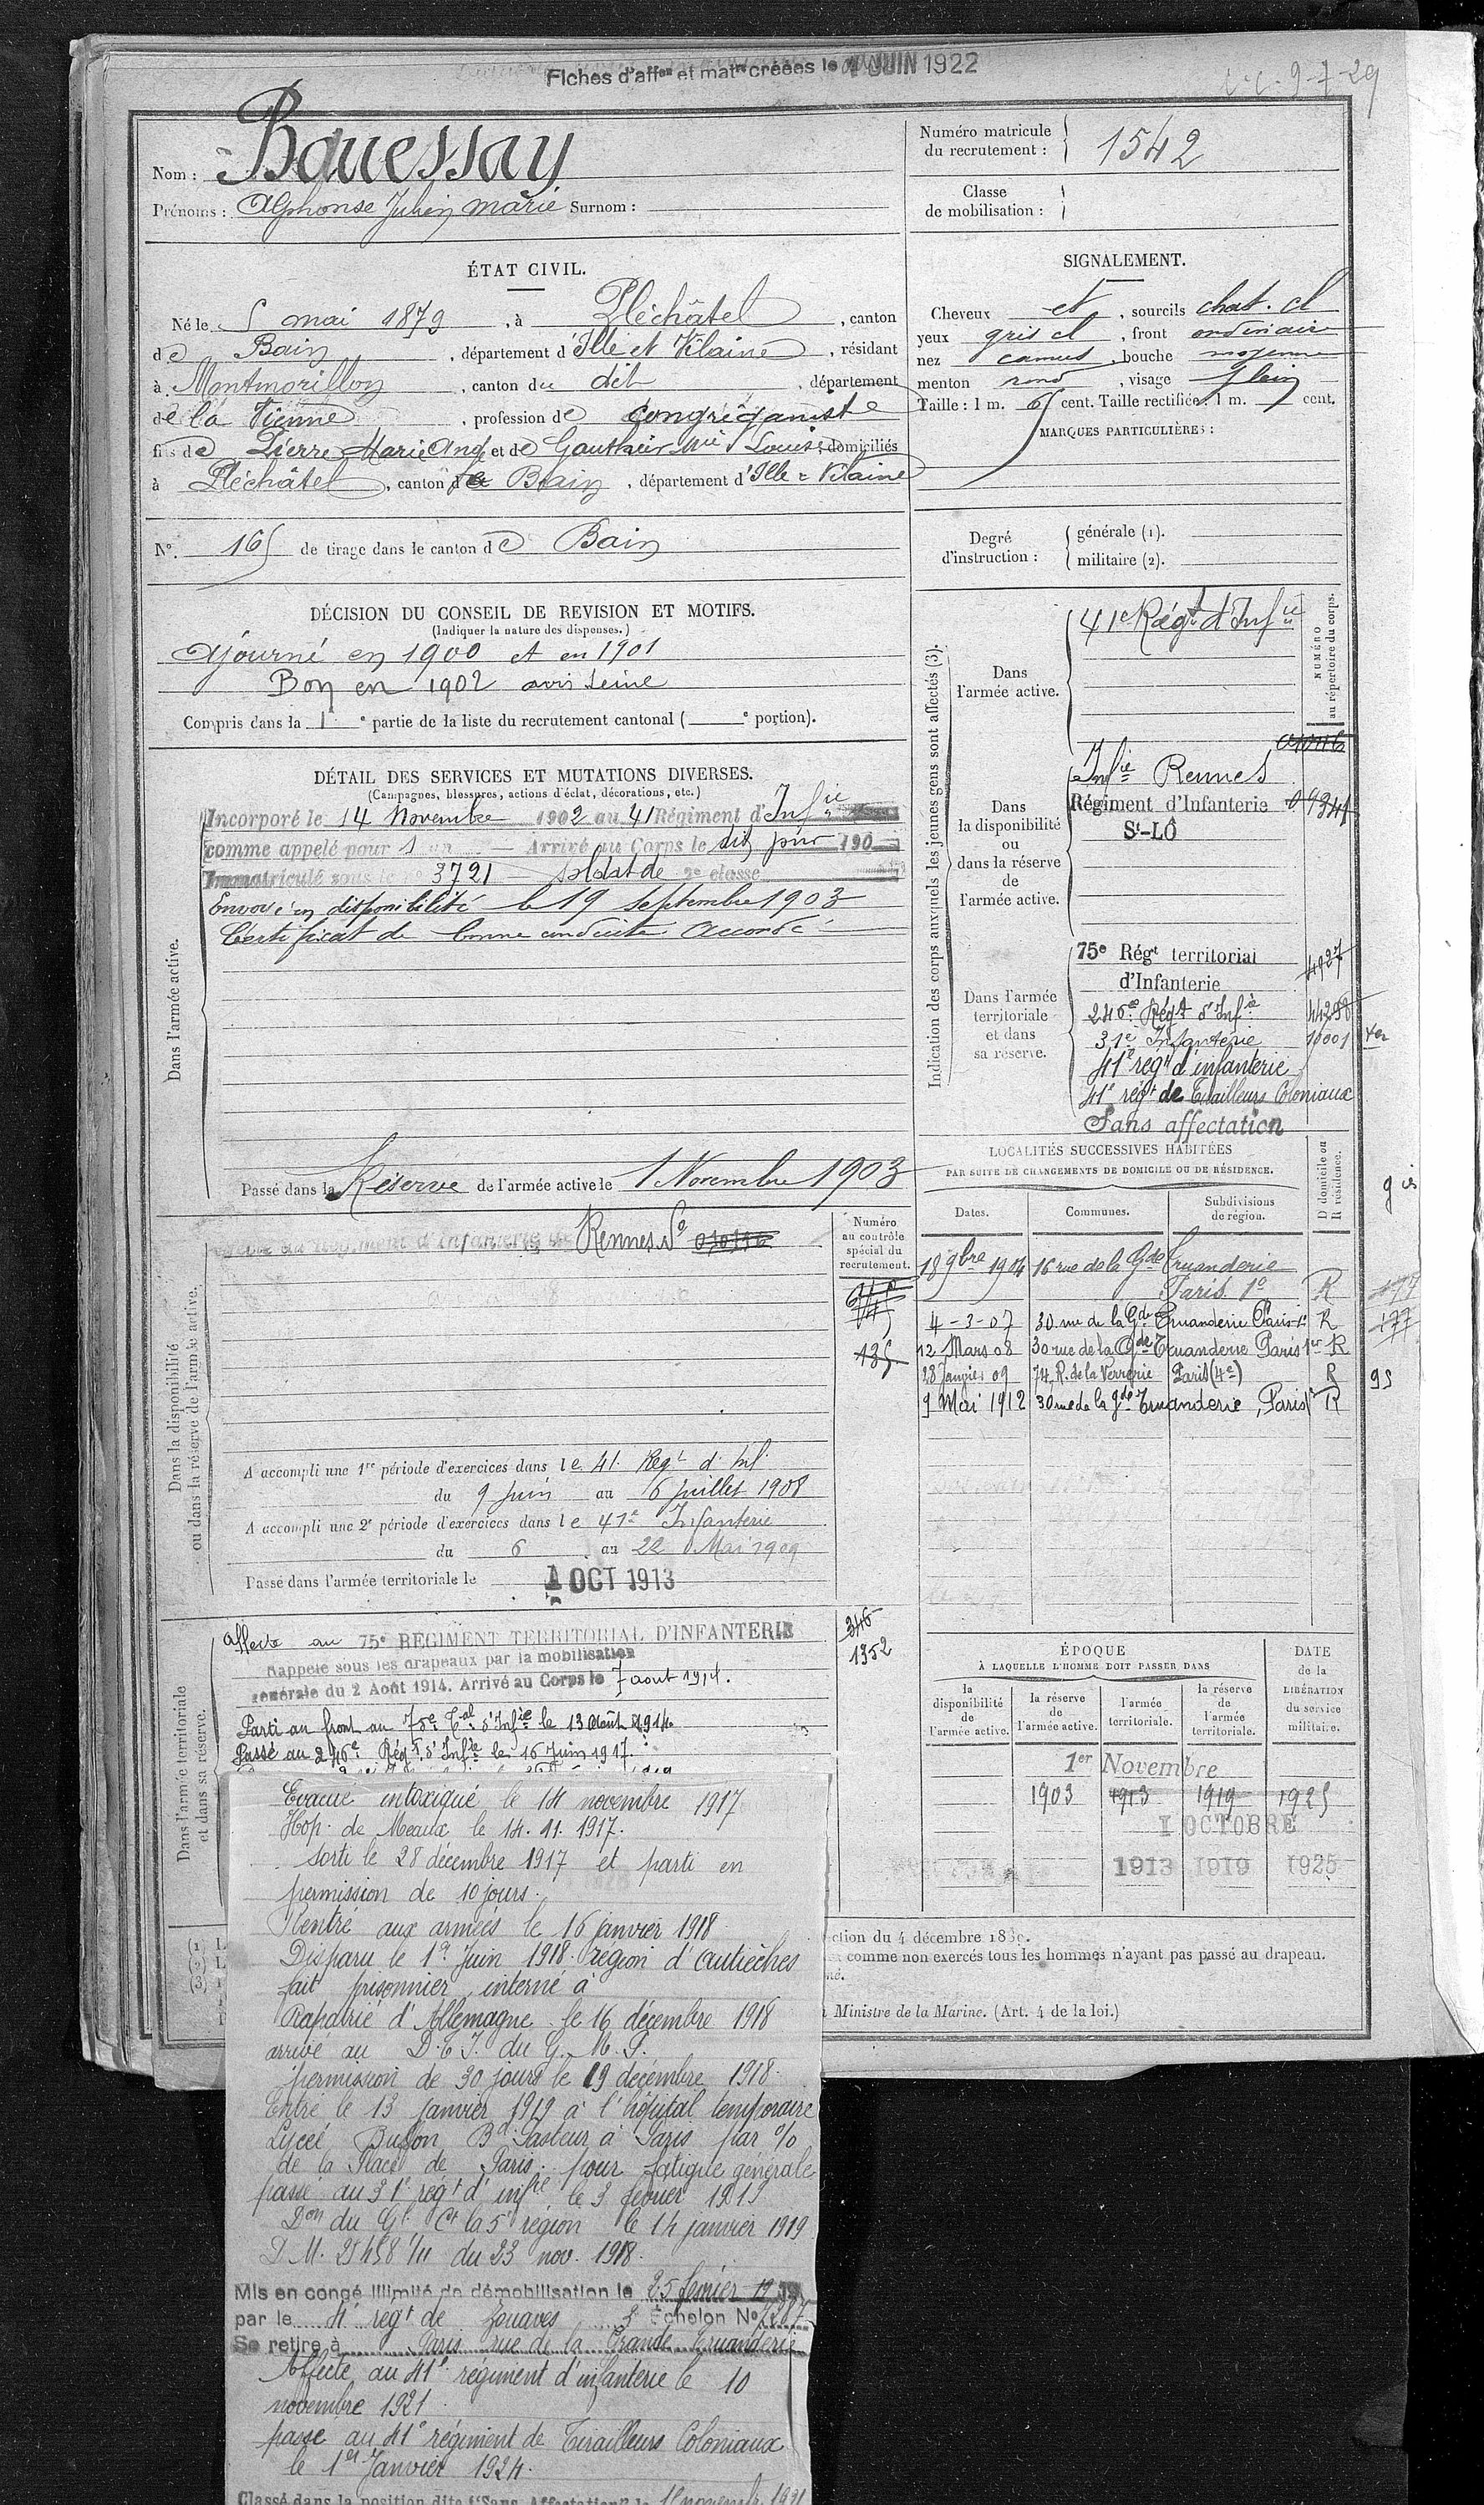 Fiches d'affon et matn créées le 1 JUIN 1922
9-7-29
Nom : Bouessay
Prénoms : Alphonse Julien Marie Surnom :
Numéro matricule du recrutement : 1542
Classe de mobilisation :
ÉTAT CIVIL.
Né le 5 mai 1879, à Pléchâtel, canton
de Bain, département d'Ille et Vilaine, résidant
à Montmorillon, canton du dit, département
de la Vienne, profession de congréganiste
fils de Pierre Marie Ange et de Gauthier Mie Louise, domiciliés
à Pléchâtel, canton de Bain, département d'Ille & Vilaine
N°. 165 de tirage dans le canton de Bain
SIGNALEMENT.
Cheveux et, sourcils chat. cl
yeux gris cl, front ordinaire
nez camus, bouche moyenne
menton rond, visage plein
Taille : 1 m. 65 cent. Taille rectifiée : 1 m. cent.
MARQUES PARTICULIÈRES :
Degré d'instruction : générale (1).
militaire (2).
DÉCISION DU CONSEIL DE REVISION ET MOTIFS.
(Indiquer la nature des dispenses.)
Ajourné en 1900 et en 1901
Bon en 1902 avis Seine
Compris dans la 1e partie de la liste du recrutement cantonal ( e portion).
DÉTAIL DES SERVICES ET MUTATIONS DIVERSES.
(Campagnes, blessures, actions d'éclat, décorations, etc.)
Dans l'armée active.
Incorporé le 14 Novembre 1902 au 41 Régiment d'Infie
comme appelé pour 1 an — Arrivé au Corps le dit jour 190
Immatriculé sous le no 3721 — soldat de 2e classe
Envoyé en disponibilité le 19 septembre 1903
Certificat de bonne conduite accordé
Passé dans la Réserve de l'armée active le 1 Novembre 1903
Indication des corps auxquels les jeunes gens sont affectés (3).
NUMÉRO au répertoire du corps.
Dans l'armée active.
41e Régt d'Infie
Dans la disponibilité ou dans la réserve de l'armée active.
Infie Rennes
Régiment d'Infanterie 09341
St-LÔ
Dans l'armée territoriale et dans sa réserve.
75e Régt territorial 4927
d'Infanterie
246e Régt d'Infie 44298
31e Infanterie 10001 ter
41e regt d'infanterie
41e régt de Tirailleurs Coloniaux
Sans affectation
LOCALITÉS SUCCESSIVES HABITÉES
PAR SUITE DE CHANGEMENTS DE DOMICILE OU DE RÉSIDENCE.
Dates. Communes. Subdivisions de région. D domicile ou R résidence.
18 9bre 1904 16 rue de la Gde Truanderie
Paris 1e R 177
4-3-07 30 rue de la Gde Truanderie Paris 1e R 177
12 Mars 08 30 rue de la Gde Truanderie Paris 1er R
28 Janvier 09 74, R. de la Verrerie Paris (4e) R 95
9 Mai 1912 30 rue de la Gde Truanderie, Paris R
Dans la disponibilité ou dans la réserve de l'armée active.
Numéro au contrôle spécial du recrutement.
Régiment d'Infanterie de Rennes No
135
A accompli une 1re période d'exercices dans le 41. Regt d'Inf.
du 9 Juin au 6 Juillet 1908
A accompli une 2e période d'exercices dans le 41e Infanterie
du 6 au 22 Mai 1909
Passé dans l'armée territoriale le 1 OCT 1913
Dans l'armée territoriale et dans sa réserve.
346
1352
Affecté au 75e REGIMENT TERRITORIAL D'INFANTERIE
Rappelé sous les drapeaux par la mobilisation
générale du 2 Août 1914. Arrivé au Corps le 7 aout 1914.
Parti au front au 75e Tal d'Infie le 13 Août 1914.
Passé au 246e Régt d'Infie le 16 Juin 1917.
Evacué intoxiqué le 14 novembre 1917
Hop. de Meaux le 14.11.1917.
sorti le 28 décembre 1917 et parti en
permission de 10 jours.
Rentré aux armées le 16 janvier 1918
Disparu le 1er Juin 1918 région d'Autrèches
fait prisonnier, interné à
Rapatrié d'Allemagne le 16 décembre 1918
arrivé au D.T.I. du G.M.P.
permission de 30 jours le 19 décembre 1918.
Entré le 13 janvier 1919 à l'hôpital temporaire
Lycée Buffon Bd Pasteur à Paris par %
de la Place de Paris. pour fatigue générale
passé au 31e régt d'infie le 3 février 1919
Don du Gl Ct la 5e région le 14 janvier 1919
D.M. 25458 /11 du 23 nov. 1918.
Mis en congé illimité de démobilisation le 25 février 1919
par le 4e régt de Zouaves 3e Échelon No 1287
Se retire à Paris rue de la Grande Truanderie
Affecté au 41e régiment d'infanterie le 10
novembre 1921.
passe au 41e régiment de Tirailleurs Coloniaux
le 1er Janvier 1924.
Classé dans la position dite "Sans Affectation" le
ÉPOQUE
À LAQUELLE L'HOMME DOIT PASSER DANS
la disponibilité de l'armée active. la réserve de l'armée active. l'armée territoriale. la réserve de l'armée territoriale.
DATE de la LIBÉRATION du service militaire.
1er Novembre
1903 1913 1919 1925
1 OCTOBRE
1913 1919 1925
ction du 4 décembre 1889.
comme non exercés tous les hommes n'ayant pas passé au drapeau.
Ministre de la Marine. (Art. 4 de la loi.)